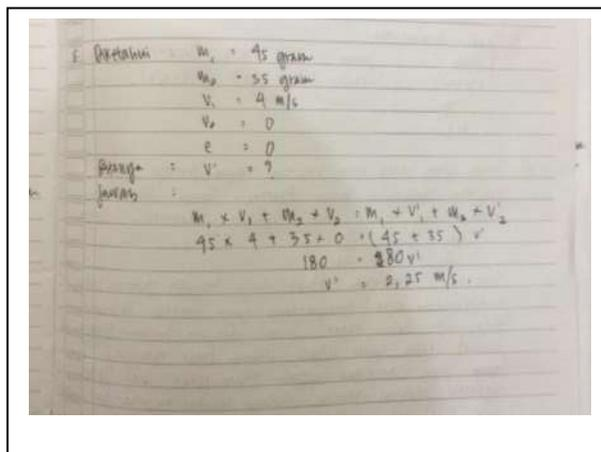 5 Diketahui : m₁ = 45 gram
m₂ = 35 gram
V₁ = 4 m/s
V₂ = 0
e = 0
Ditanya : V' = ?
Jawab :
m₁ × V₁ + m₂ × V₂ = m₁ × V'₁ + m₂ × V'₂
45 × 4 + 35 × 0 = (45 + 35) v'
180 = 80 v'
v' = 2,25 m/s.